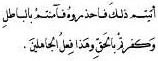 أتيتم ذلك فاحذروه فآمنتم بالباطل
وكفرتم بالحق وهذا فعل الجاهلين .